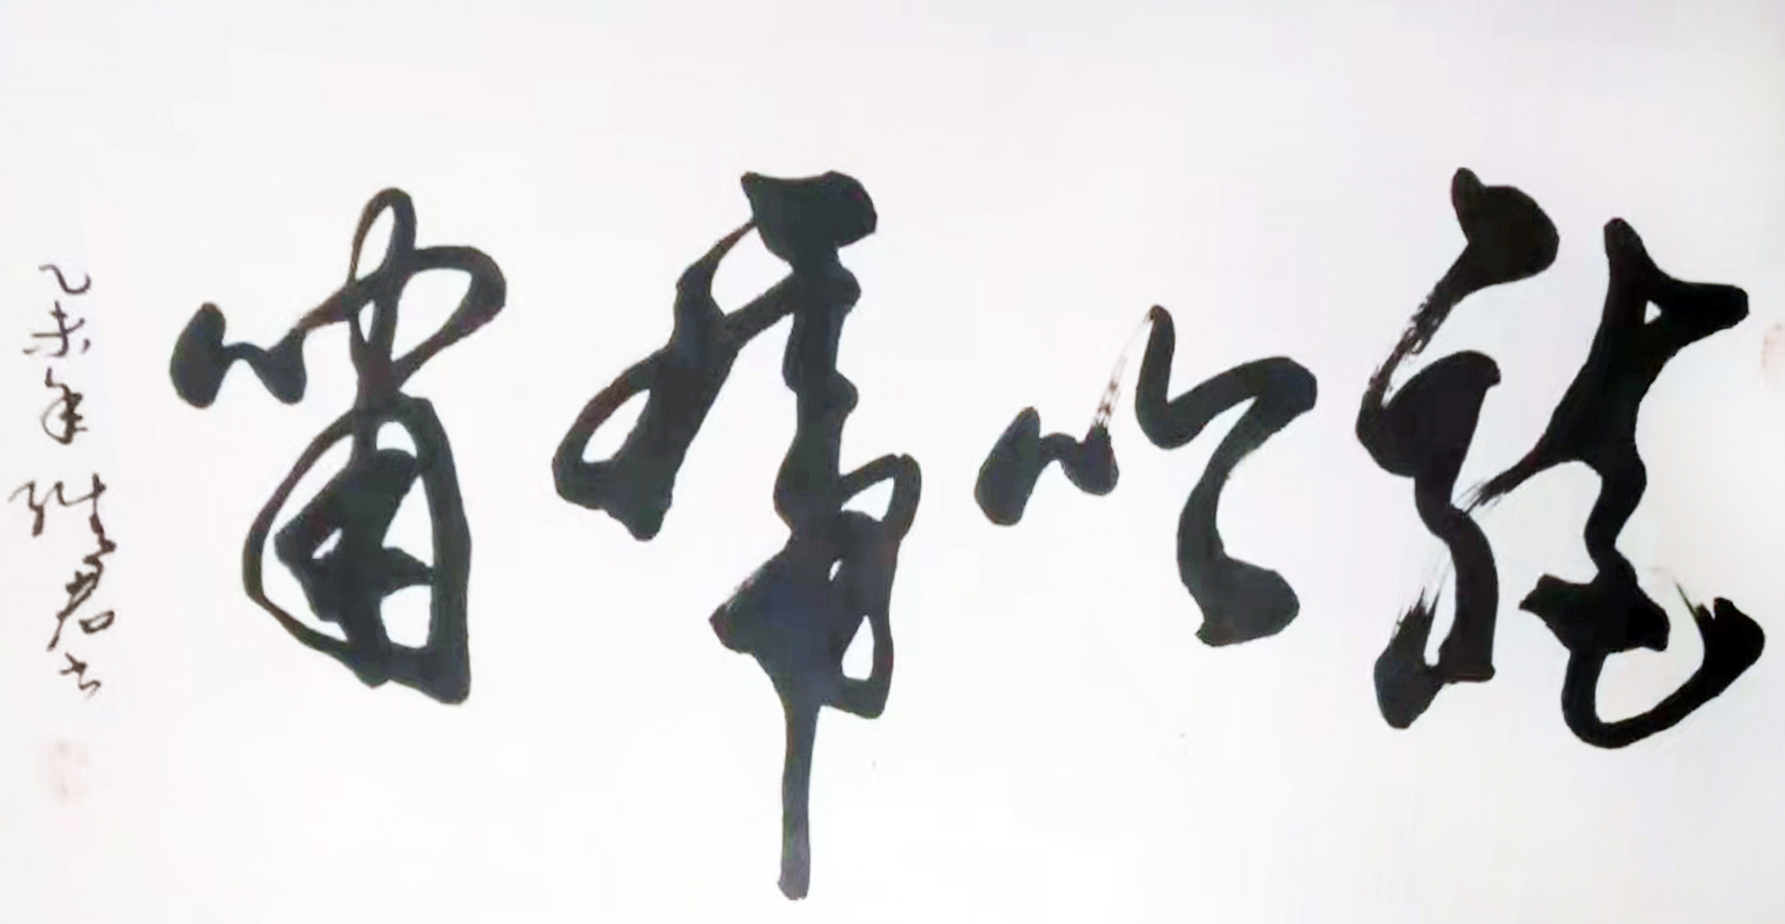 龍吟虎嘯
乙未年 君书